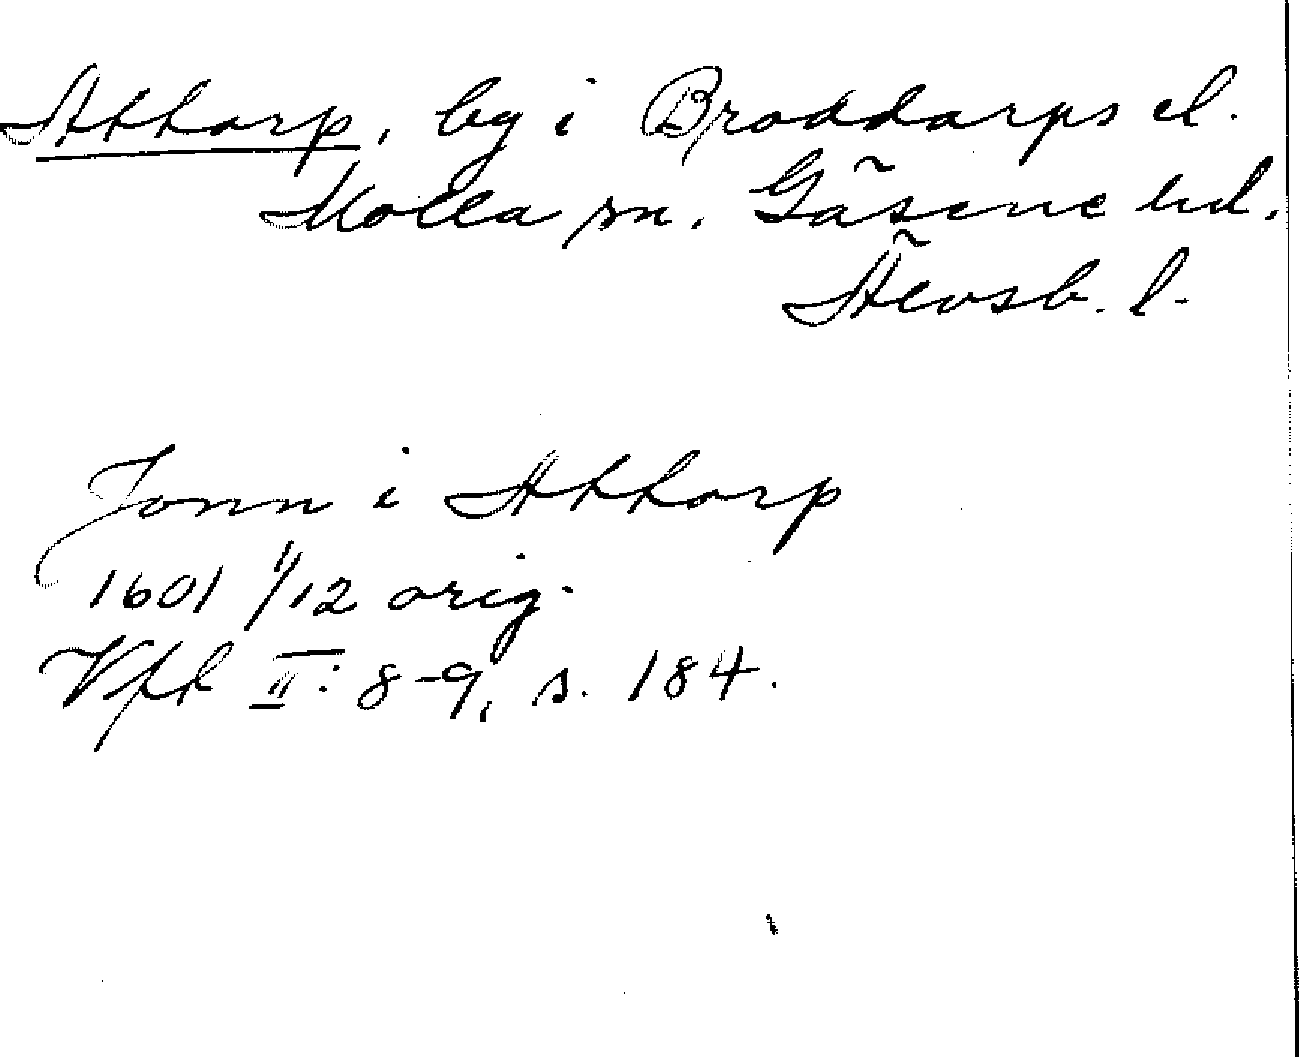 Attarp, by i Broddarps el.
Molla sn. Gäsene hd.
Älvsb. l.
Jonn i Attarp
1601 11/12 orig.
Vft II: 8-9, s. 184.